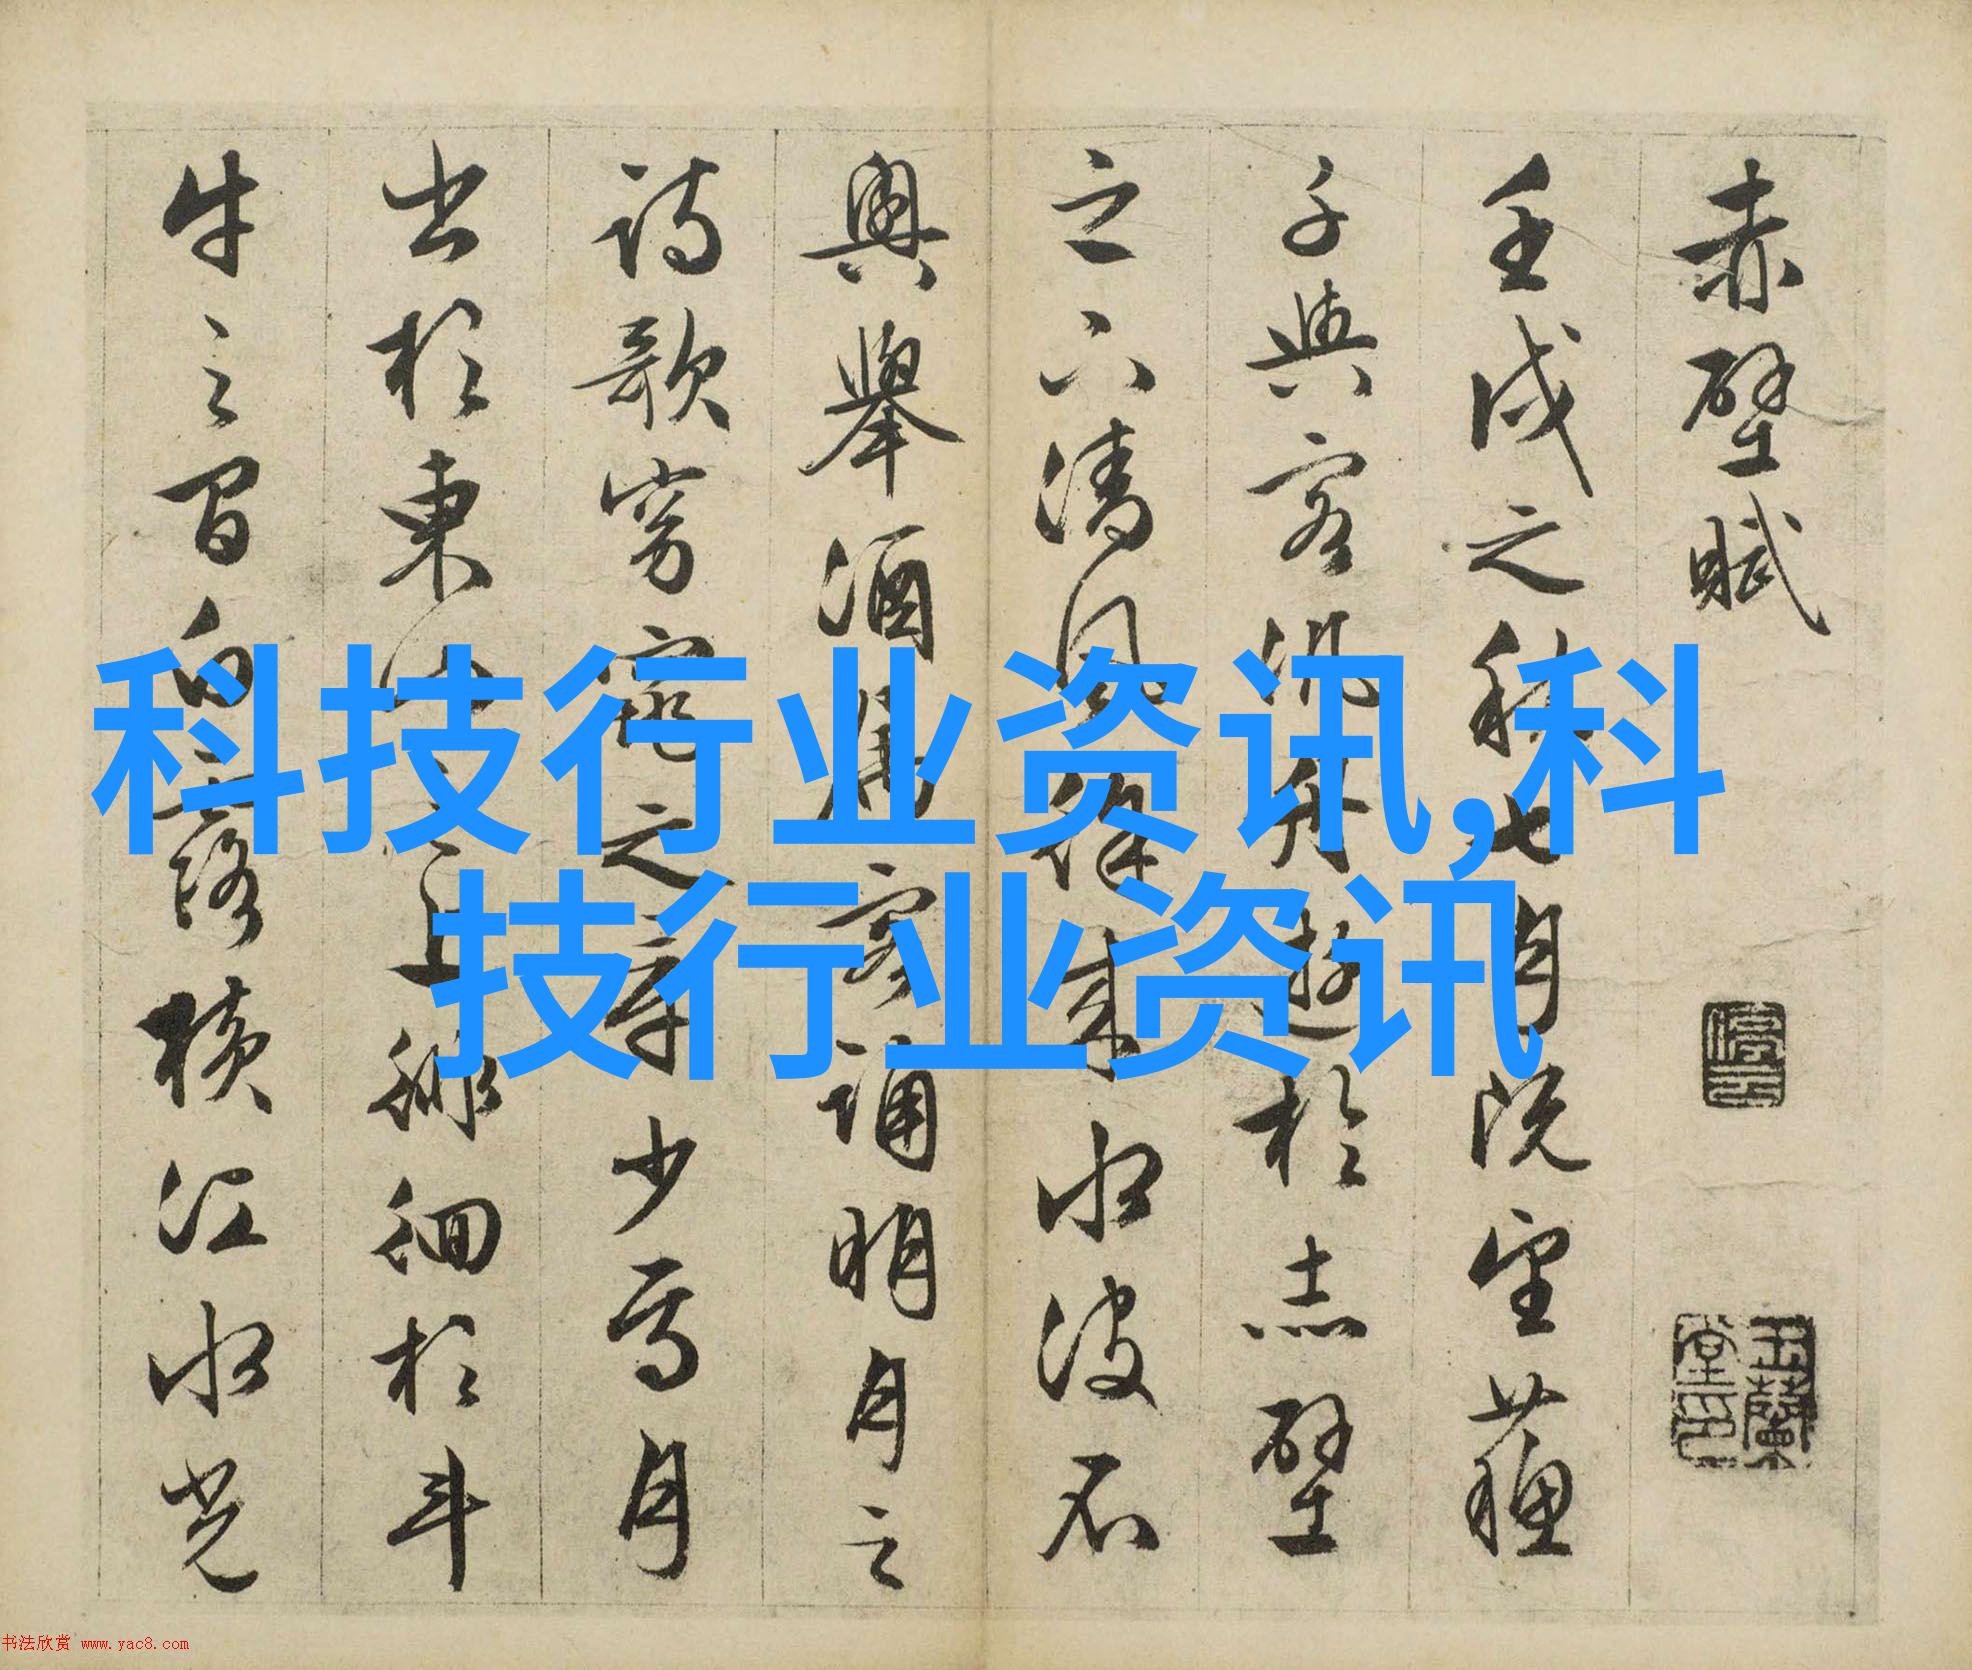 赤壁賦
壬戌之秋七月既望蘓
子與客汎舟遊於赤壁
之下清風徐来水波不
興舉酒屬客誦明月之
詩歌窈窕之章少焉月
出於東山之上徘徊於斗
牛之間白露横江水光
停雲
玉蘭堂印
科技行业资讯,科
技行业资讯
书法欣赏 www.yac8.com